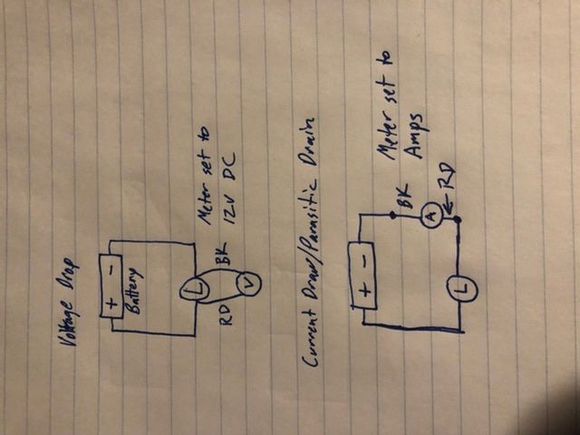 Voltage Drop
+ -
Battery
L
RD
BK
V
Meter set to
12V DC
Current Draw/Parasitic Drain
+ -
L
BK
A
RD
Meter set to
Amps